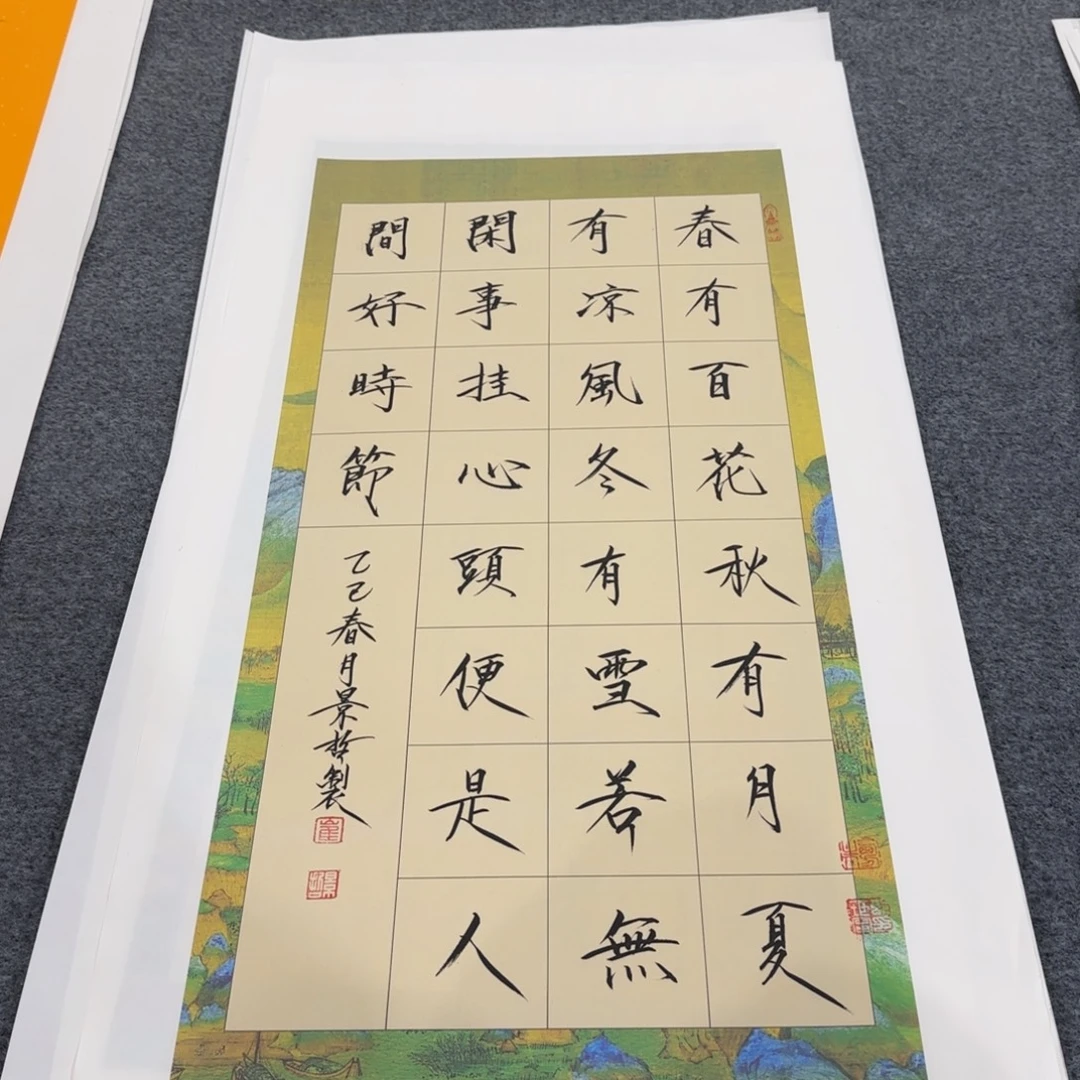 春有百花秋有月夏
有凉風冬有雪若無
閑事挂心頭便是人
間好時節
乙巳春月景哲製